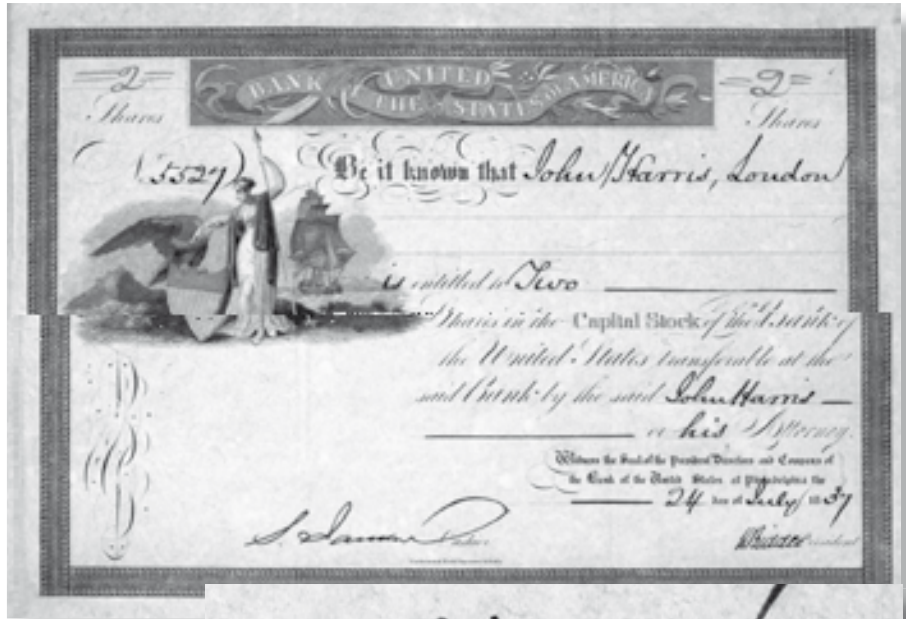 2 2
BANK OF THE UNITED STATES OF AMERICA
Shares Shares
5527 Be it known that John Harris, London
is entitled to Two
Shares in the Capital Stock of the Bank of
the United States transferable at the
said Bank by the said John Harris
or his Attorney.
Witness the Seal of the President Directors and Company of
the Bank of the United States at Philadelphia the
24 day of July 1837
Cashier President